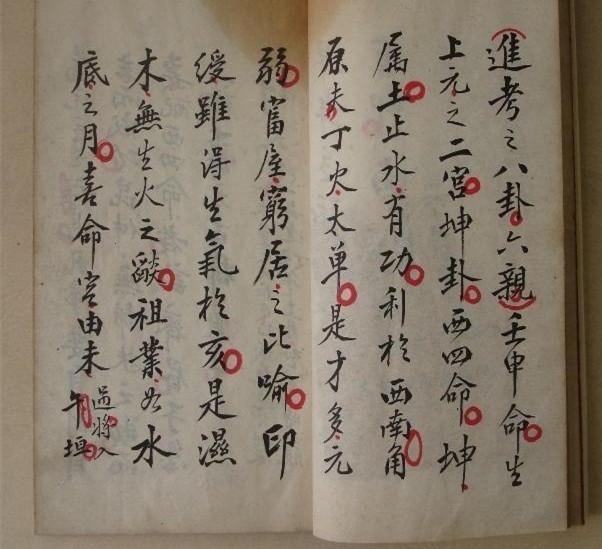 進考之八卦六親壬申命生
上元之二宮坤卦西四命坤
属土止水有功利於西南角
原夫丁火太单是才多元
弱富屋窮居之比喻印
绶雖得生氣於亥是濕
木無生火之燄祖業如水
底之月喜命宫由未過將入午垣